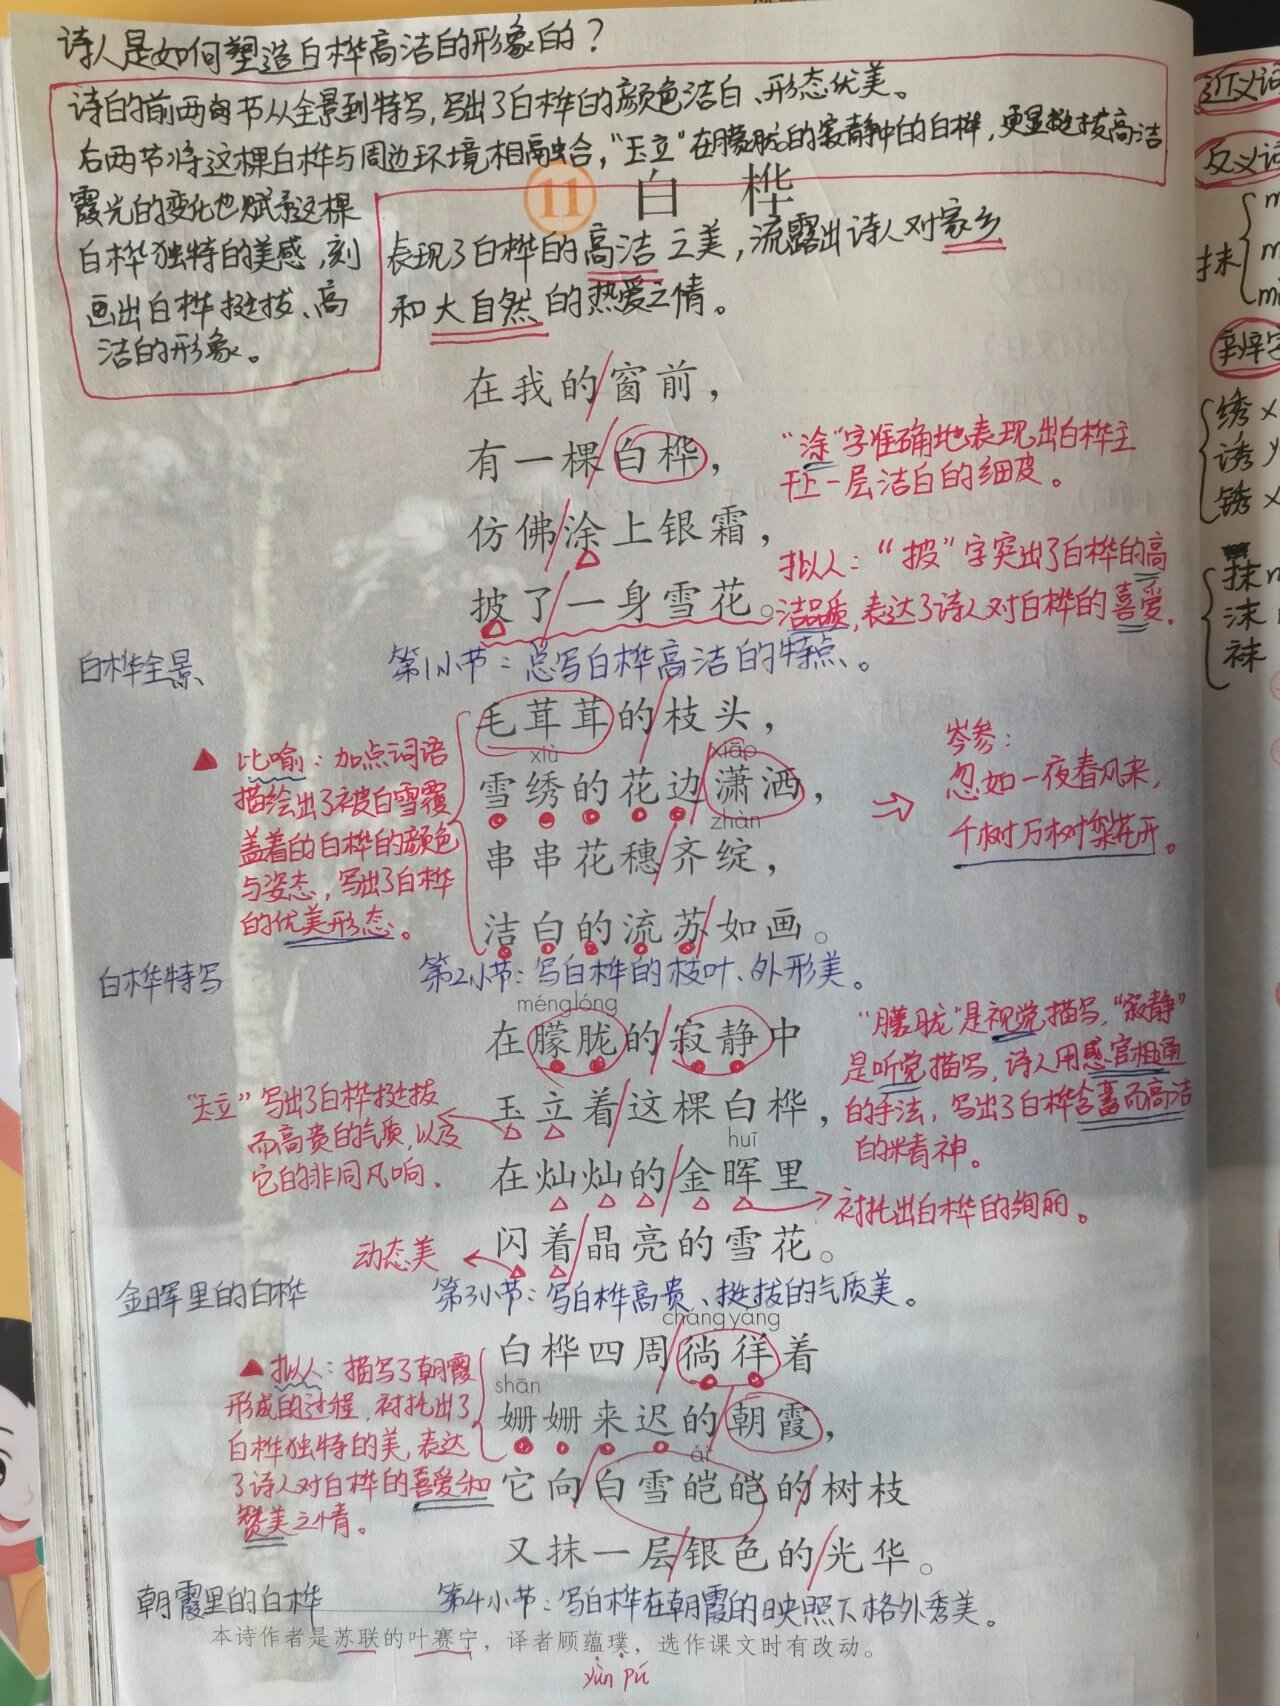 诗人是如何塑造白桦高洁的形象的？
诗的前两节从全景到特写，写出了白桦的颜色洁白、形态优美。
后两节将这棵白桦与周边环境相融合，“玉立”在朦胧的寂静中的白桦，更显挺拔高洁
霞光的变化也赋予这棵
白桦独特的美感，刻
画出白桦挺拔、高
洁的形象。
11 白桦
表现了白桦的高洁之美，流露出诗人对家乡
和大自然的热爱之情。
在我的/窗前，
有一棵/白桦，
仿佛/涂上银霜，
披了/一身雪花。
“涂”字准确地表现出白桦主
干上一层洁白的细皮。
拟人：“披”字突出了白桦的高
洁品质，表达了诗人对白桦的喜爱。
白桦全景
第1小节：总写白桦高洁的特点。
毛茸茸的/枝头，
xiù xiāo
雪绣的花边/潇洒，
zhàn
串串花穗/齐绽，
洁白的流苏/如画。
▲比喻：加点词语
描绘出了被白雪覆
盖着的白桦的颜色
与姿态，写出了白桦
的优美形态。
岑参：
忽如一夜春风来，
千树万树梨花开。
白桦特写
第2小节：写白桦的枝叶、外形美。
ménglóng
在朦胧的/寂静中
玉立着/这棵白桦，
huī
在灿灿的/金晖里
闪着/晶亮的雪花。
“朦胧”是视觉描写，“寂静”
是听觉描写，诗人用感官相通
的手法，写出了白桦含蓄而高洁
的精神。
“玉立”写出了白桦挺拔
而高贵的气质，以及
它的非同凡响。
衬托出白桦的绚丽。
动态美
金晖里的白桦
第3小节：写白桦高贵、挺拔的气质美。
chángyáng
白桦四周/徜徉着
shān
姗姗来迟的/朝霞，
ái
它向/白雪皑皑的/树枝
又抹一层/银色的/光华。
▲拟人：描写了朝霞
形成的过程，衬托出了
白桦独特的美，表达
了诗人对白桦的喜爱和
赞美之情。
朝霞里的白桦
第4小节：写白桦在朝霞的映照下格外秀美。
本诗作者是苏联的叶赛宁，译者顾蕴璞，选作课文时有改动。
yùn pú
近义词
反义词
抹
辨字
绣
诱
锈
抹
沫
袜